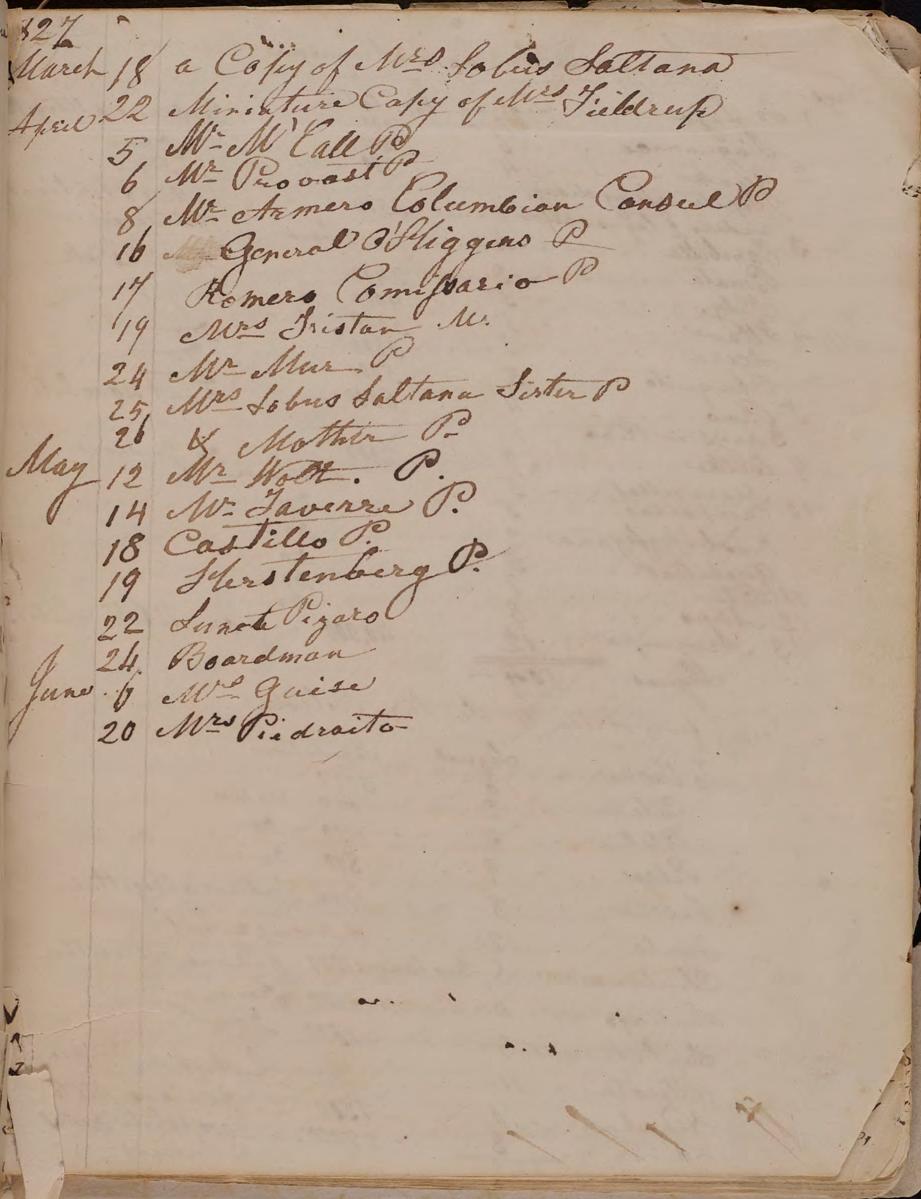 1827
March 18 a Copy of Mrs Sobus Saltana
22 Miniature Copy of Mrs Fieldrup
April
5 Mr McCall P
6 Mr Provost P
8 Mr Armero Columbian Consul P
16 General O'Higgens P
17 Romero Comissario P
19 Mrs Tristan M.
24 Mr Mur P
25 Mrs Sobus Saltana Sister P
26 & Mother P.
May 12 Mr Holt. P.
14 Mr Taverre P.
18 Castillo P.
19 Herstenberg P.
22 Pizaro
24 Boardman
June 6 Mrs Guise
20 Mrs Piedraito